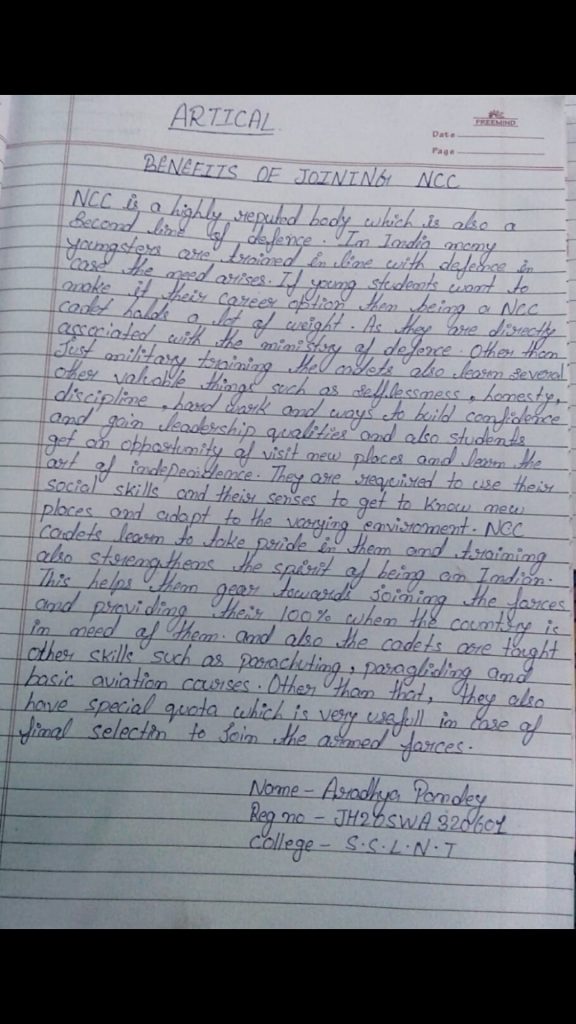 ARTICAL.
FREEMIND
Date
Page
BENEFITS OF JOINING NCC
NCC is a highly reputed body which is also a
Second line of defence. In India many
youngsters are trained in line with defence in
case the need arises. If young students want to
make it their career option then being a NCC
cadet holds a lot of weight. As they are directly
associated with the ministry of defence. Other than
Just military training the cadets also learn several
other valuable things such as selflessness, honesty,
discipline, hard work and ways to build confidence
and gain leadership qualities and also students
get an opportunity of visit new places and learn the
art of independence. They are required to use their
social skills and their senses to get to know new
places and adapt to the varying enviroment. NCC
cadets learn to take pride in them and training
also strengthens the spirit of being an Indian.
This helps them gear towards Joining the forces
and providing their 100% when the country is
in need of them. and also the cadets are taught
other skills such as parachuting, paragliding and
basic aviation courses. Other than that, they also
have special quota which is very usefull in case of
final selectin to Join the armed forces.
Name - Aradhya Pandey
Reg no - JH20SWA320601
College - S.S.L.N.T